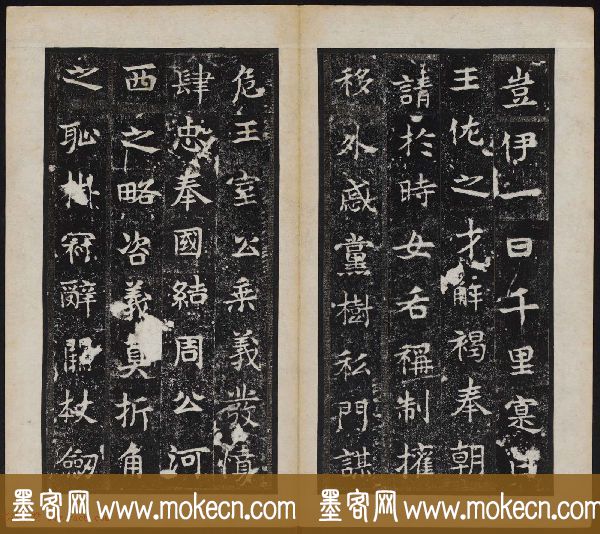 豈伊一日千里寔曰
王佐之才解褐奉朝
請於時女后稱制權
移外慼黨樹私門謀
危王室公乘義發憤
肆忠奉國結周公河
西之略咨義真折角
之恥掛冠辭闕杖劍
墨客网 www.mokecn.com
墨客网 www.mokecn.com